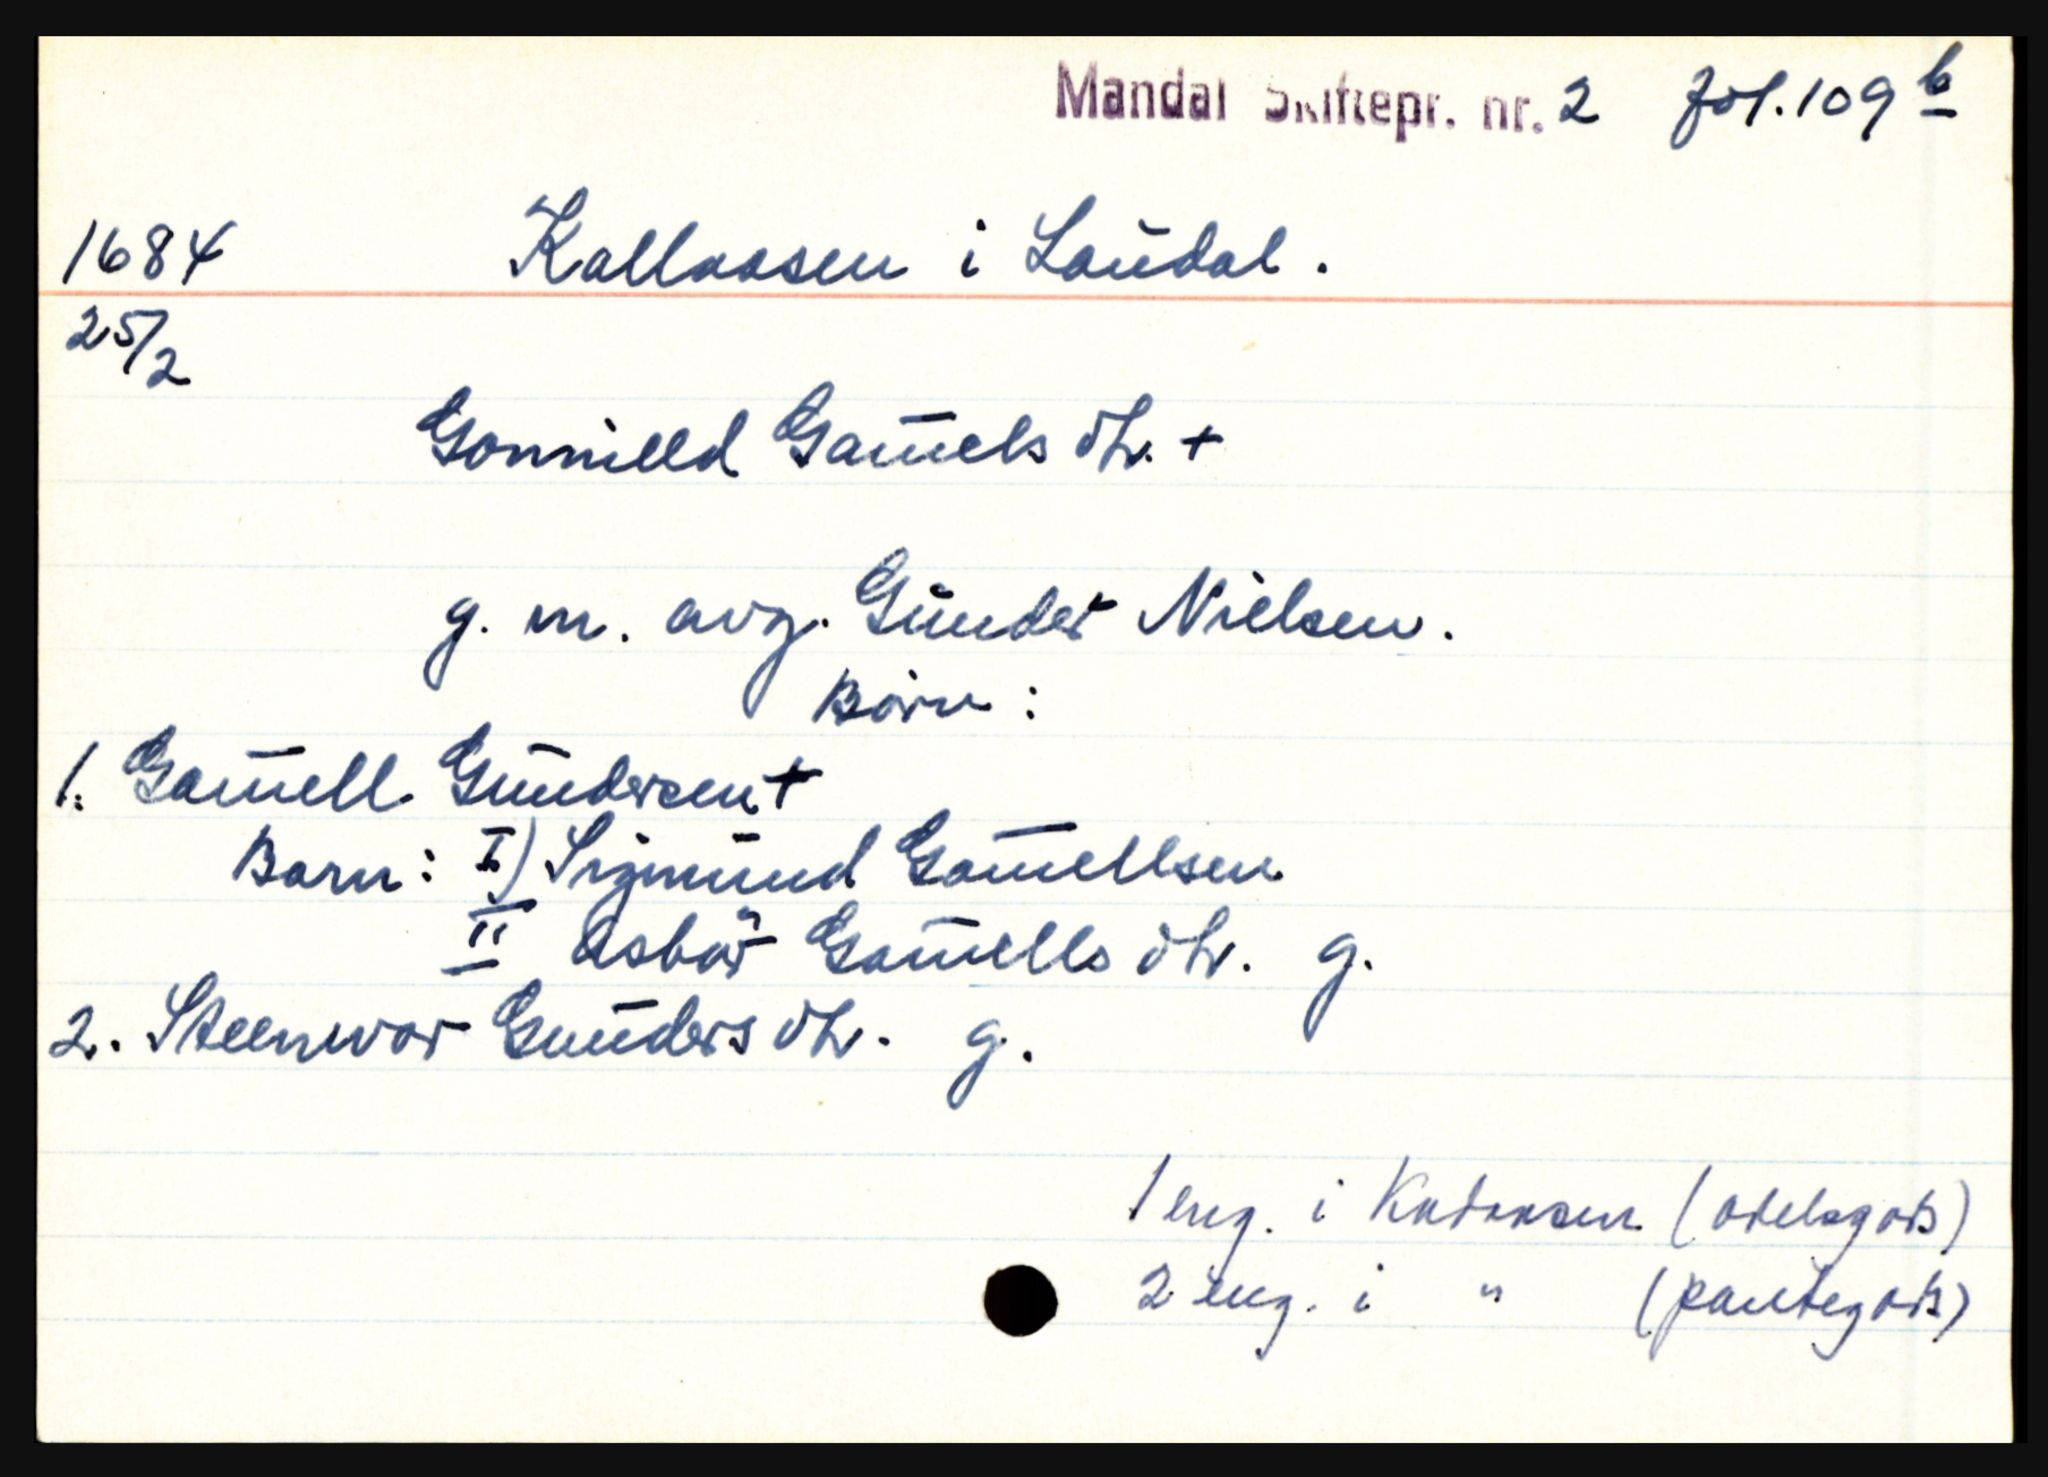 Mandal Skiftepr. nr. 2 fol. 109 b
1684 Kallaasen i Laudal.
25/2
Gonnilld Gamels dtr. +
g. m. avg. Gunder Nielsen.
Börn:
1. Gamell Gundersen +
Barn: I) Sigmund Gamellsen
II Asbör Gamells dtr. g.
2. Steenwor Gunders dtr. g.
1 eng. i (odelsgods)
2 eng. i " (pantegods)